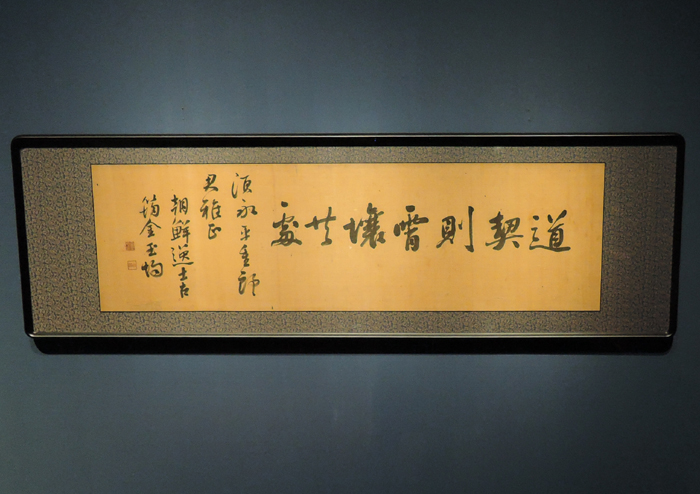 道契則霄壤共處
須永平重郎
君雅正
朝鮮逸士古
筠金玉均